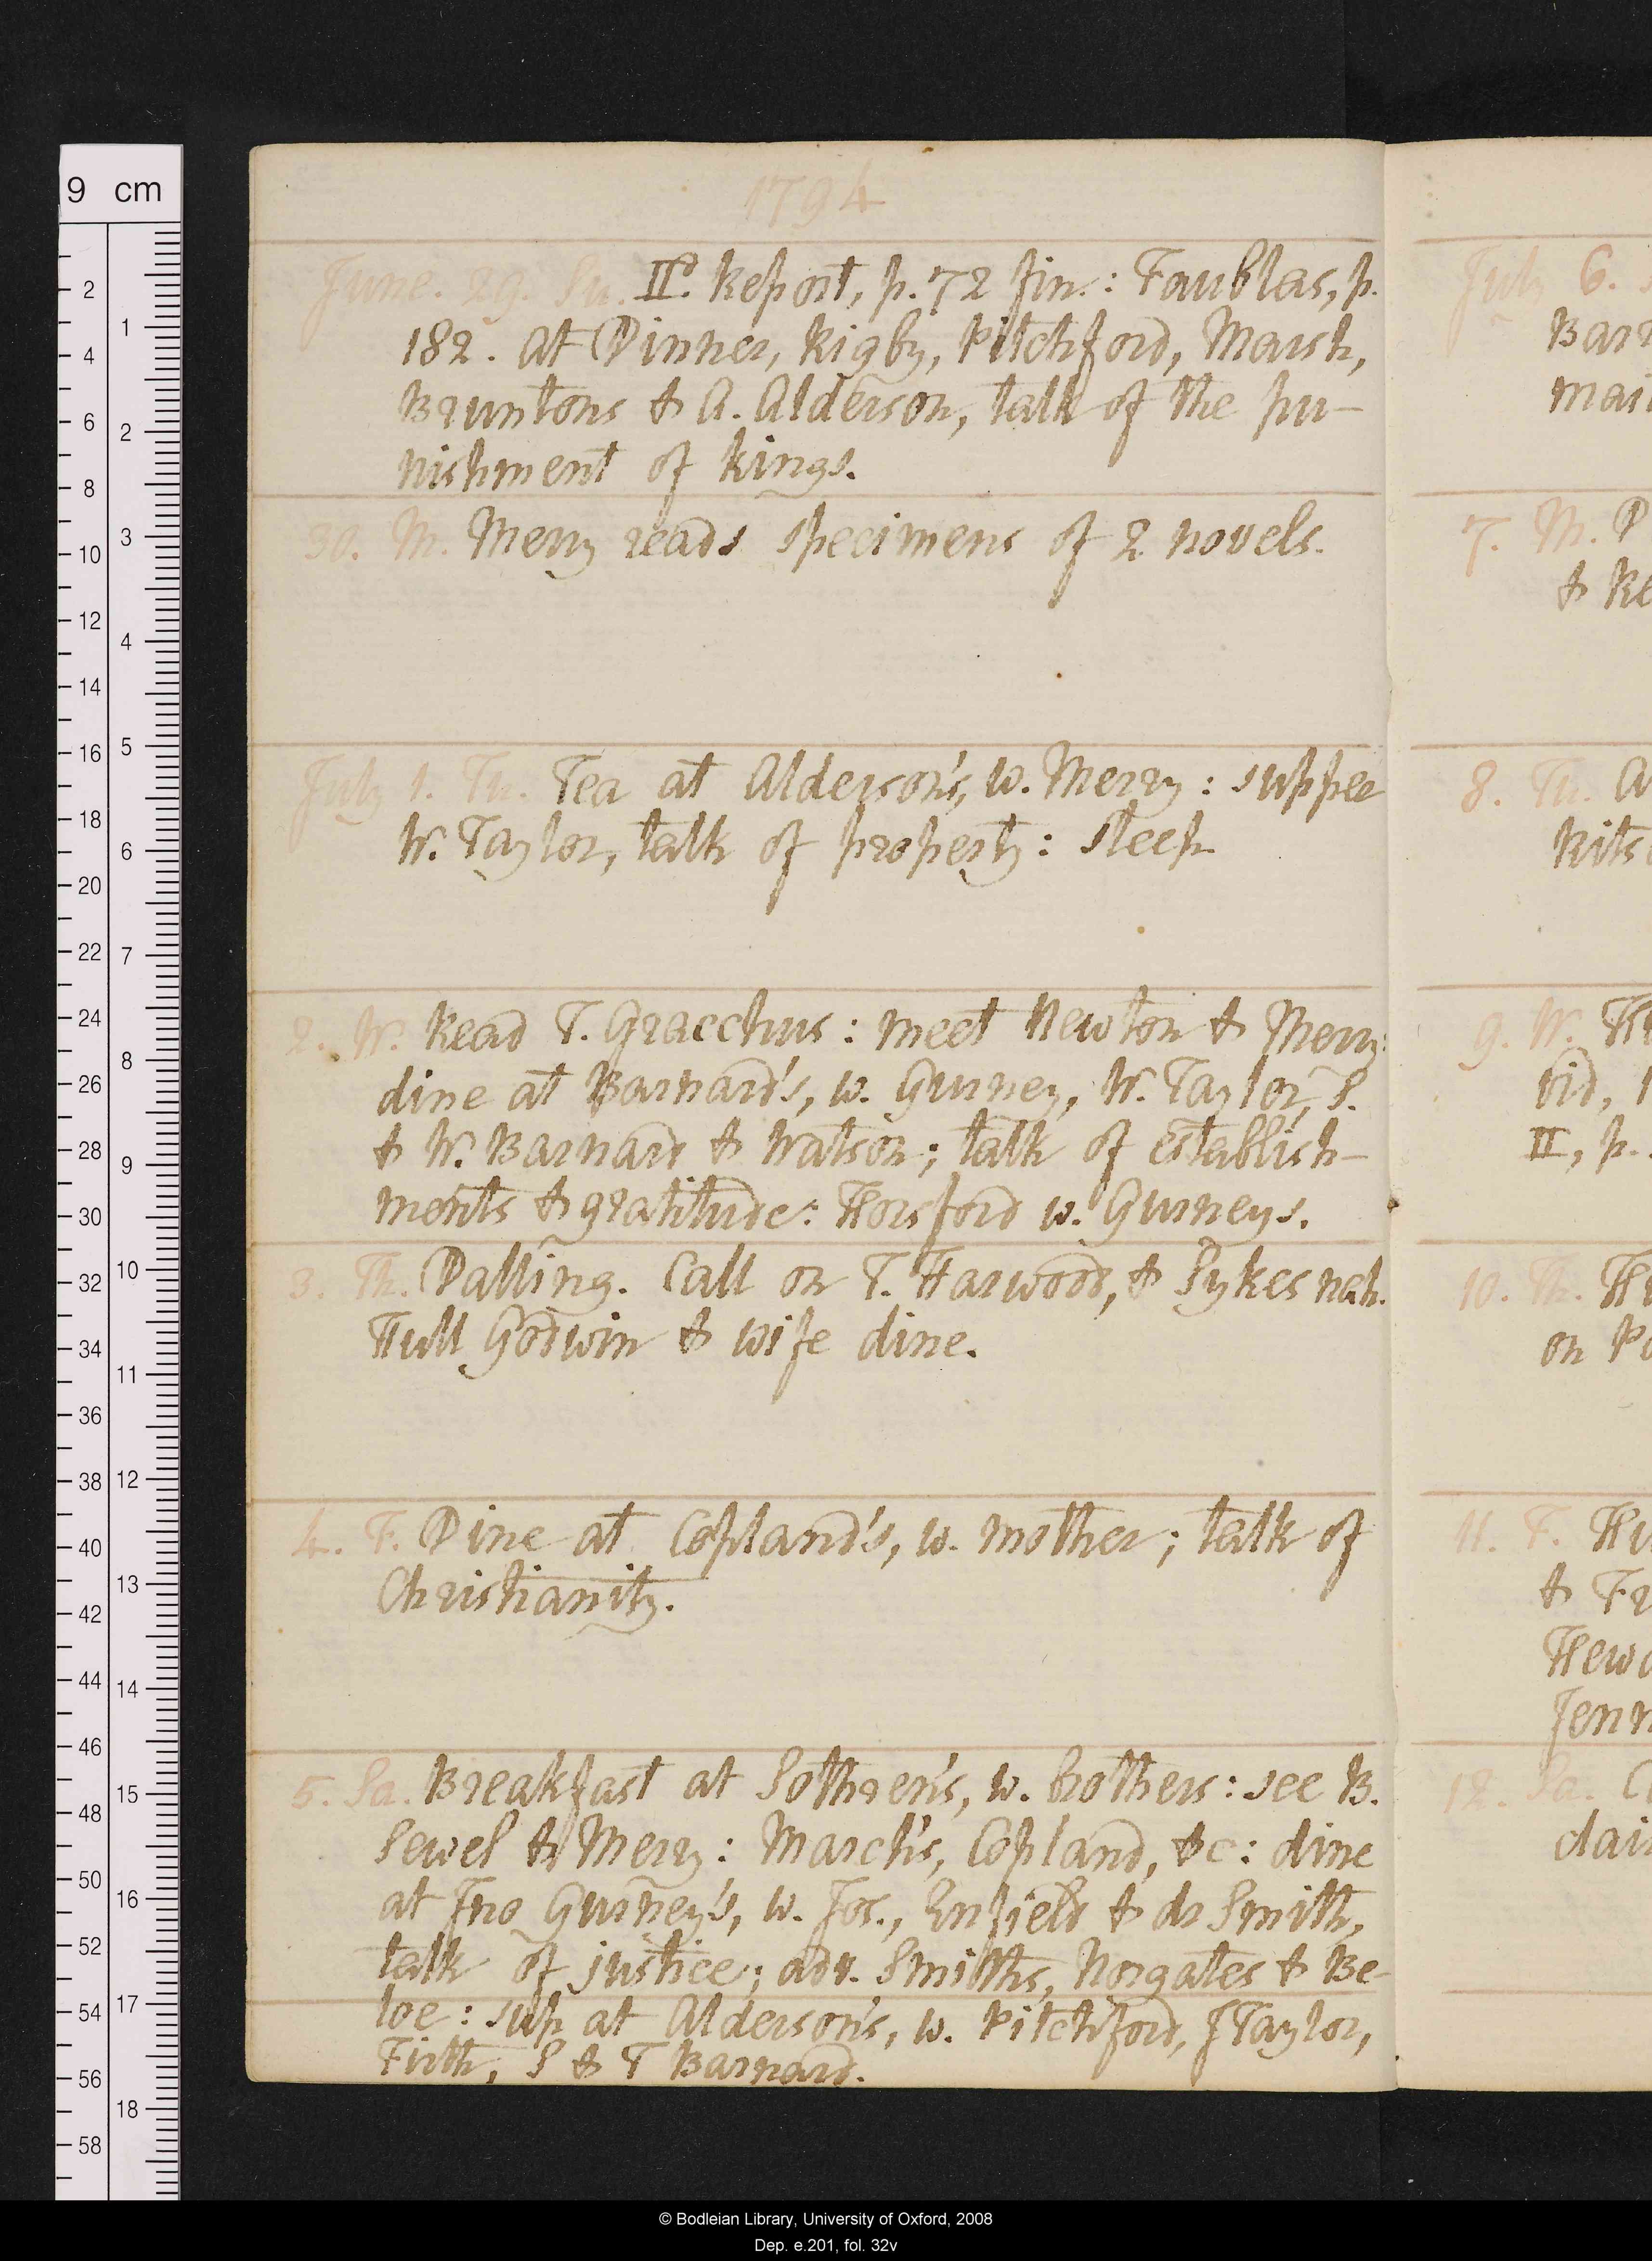 1794
June. 29. Su. IId. Report, p. 72 fin.: Faublas, p.
182. At Dinner, Rigby, Pitchford, Marsh,
Bruntons & A. Alderson, talk of the pu-
nishment of kings.
30. M. Merry reads specimens of 2 novels.
July 1. Tu. Tea at Alderson's, w. Merry: supper
W. Taylor, talk of property: sleep
2. W. Read T. Gracchus: meet Newton & Merry:
dine at Barnard's, w. Gurney, W. Taylor, S.
& W. Barnard & Watson; talk of establish-
ments & gratitude: Horsford w. Gurneys.
3. Th. Dalling. Call on T. Harwood, & Sykes nah.
Hull Godwin & wife dine.
4. F. Dine at Copland's, w. mother; talk of
Christianity.
5. Sa. Breakfast at Sothren's, w. brothers: see B.
Sewel & Merry: March's, Copland, &c: dine
at Jno Gurney's, w. Jos., Enfield & dr Smith,
talk of justice; adv. Smiths, Norgates & Be-
loe: sup at Alderson's, w. Pitchford, J Taylor,
Firth, S & T Barnard.
July 6.
Barr
mai
7. M. P
& Re
8. Tu. A
Kits
9. W.
vid,
II, p.
10. Th.
on Po
11. F.
& Fr
Hew
Jenn
12. Sa.
dai
9 cm
2
4
6
8
10
12
14
16
18
20
22
24
26
28
30
32
34
36
38
40
42
44
46
48
50
52
54
56
58
1
2
3
4
5
6
7
8
9
10
11
12
13
14
15
16
17
18
© Bodleian Library, University of Oxford, 2008
Dep. e.201, fol. 32v